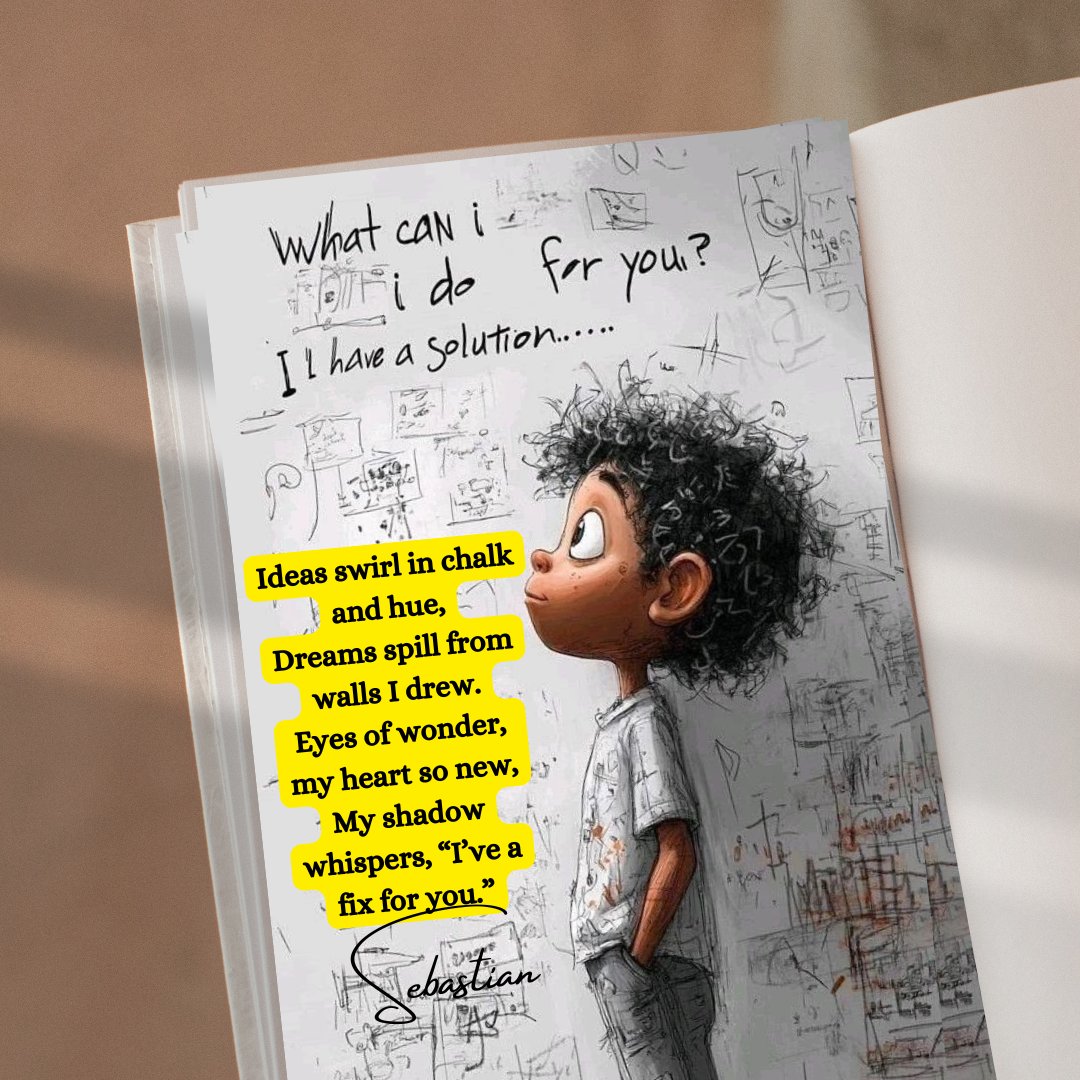 What can i
i do for you,?
I l have a solution......
Ideas swirl in chalk
and hue,
Dreams spill from
walls I drew.
Eyes of wonder,
my heart so new,
My shadow
whispers, “I’ve a
fix for you.”
Sebastian